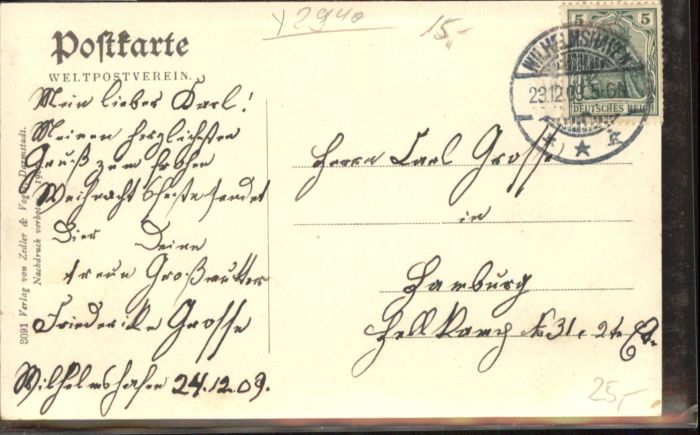 Y 2940
15,-
Postkarte
WELTPOSTVEREIN.
5 5
DEUTSCHES REICH
WILHELMSHAVEN
23.12.09. 5-6 N
* 1 * k
Mein lieber Karl!
Meinen herzlichsten
Gruß zum frohen
Weihnachtsfeste sendet
Dier Deine
treue Großmutter
Friederike Grosse
Wilhelmshafen 24.12.09.
Herrn Carl Grosse
in
Hamburg
Hellkamp No 31. 2te Et.
25,-
3091 Verlag von Zedler & Vogel, Darmstadt.
Nachdruck verboten